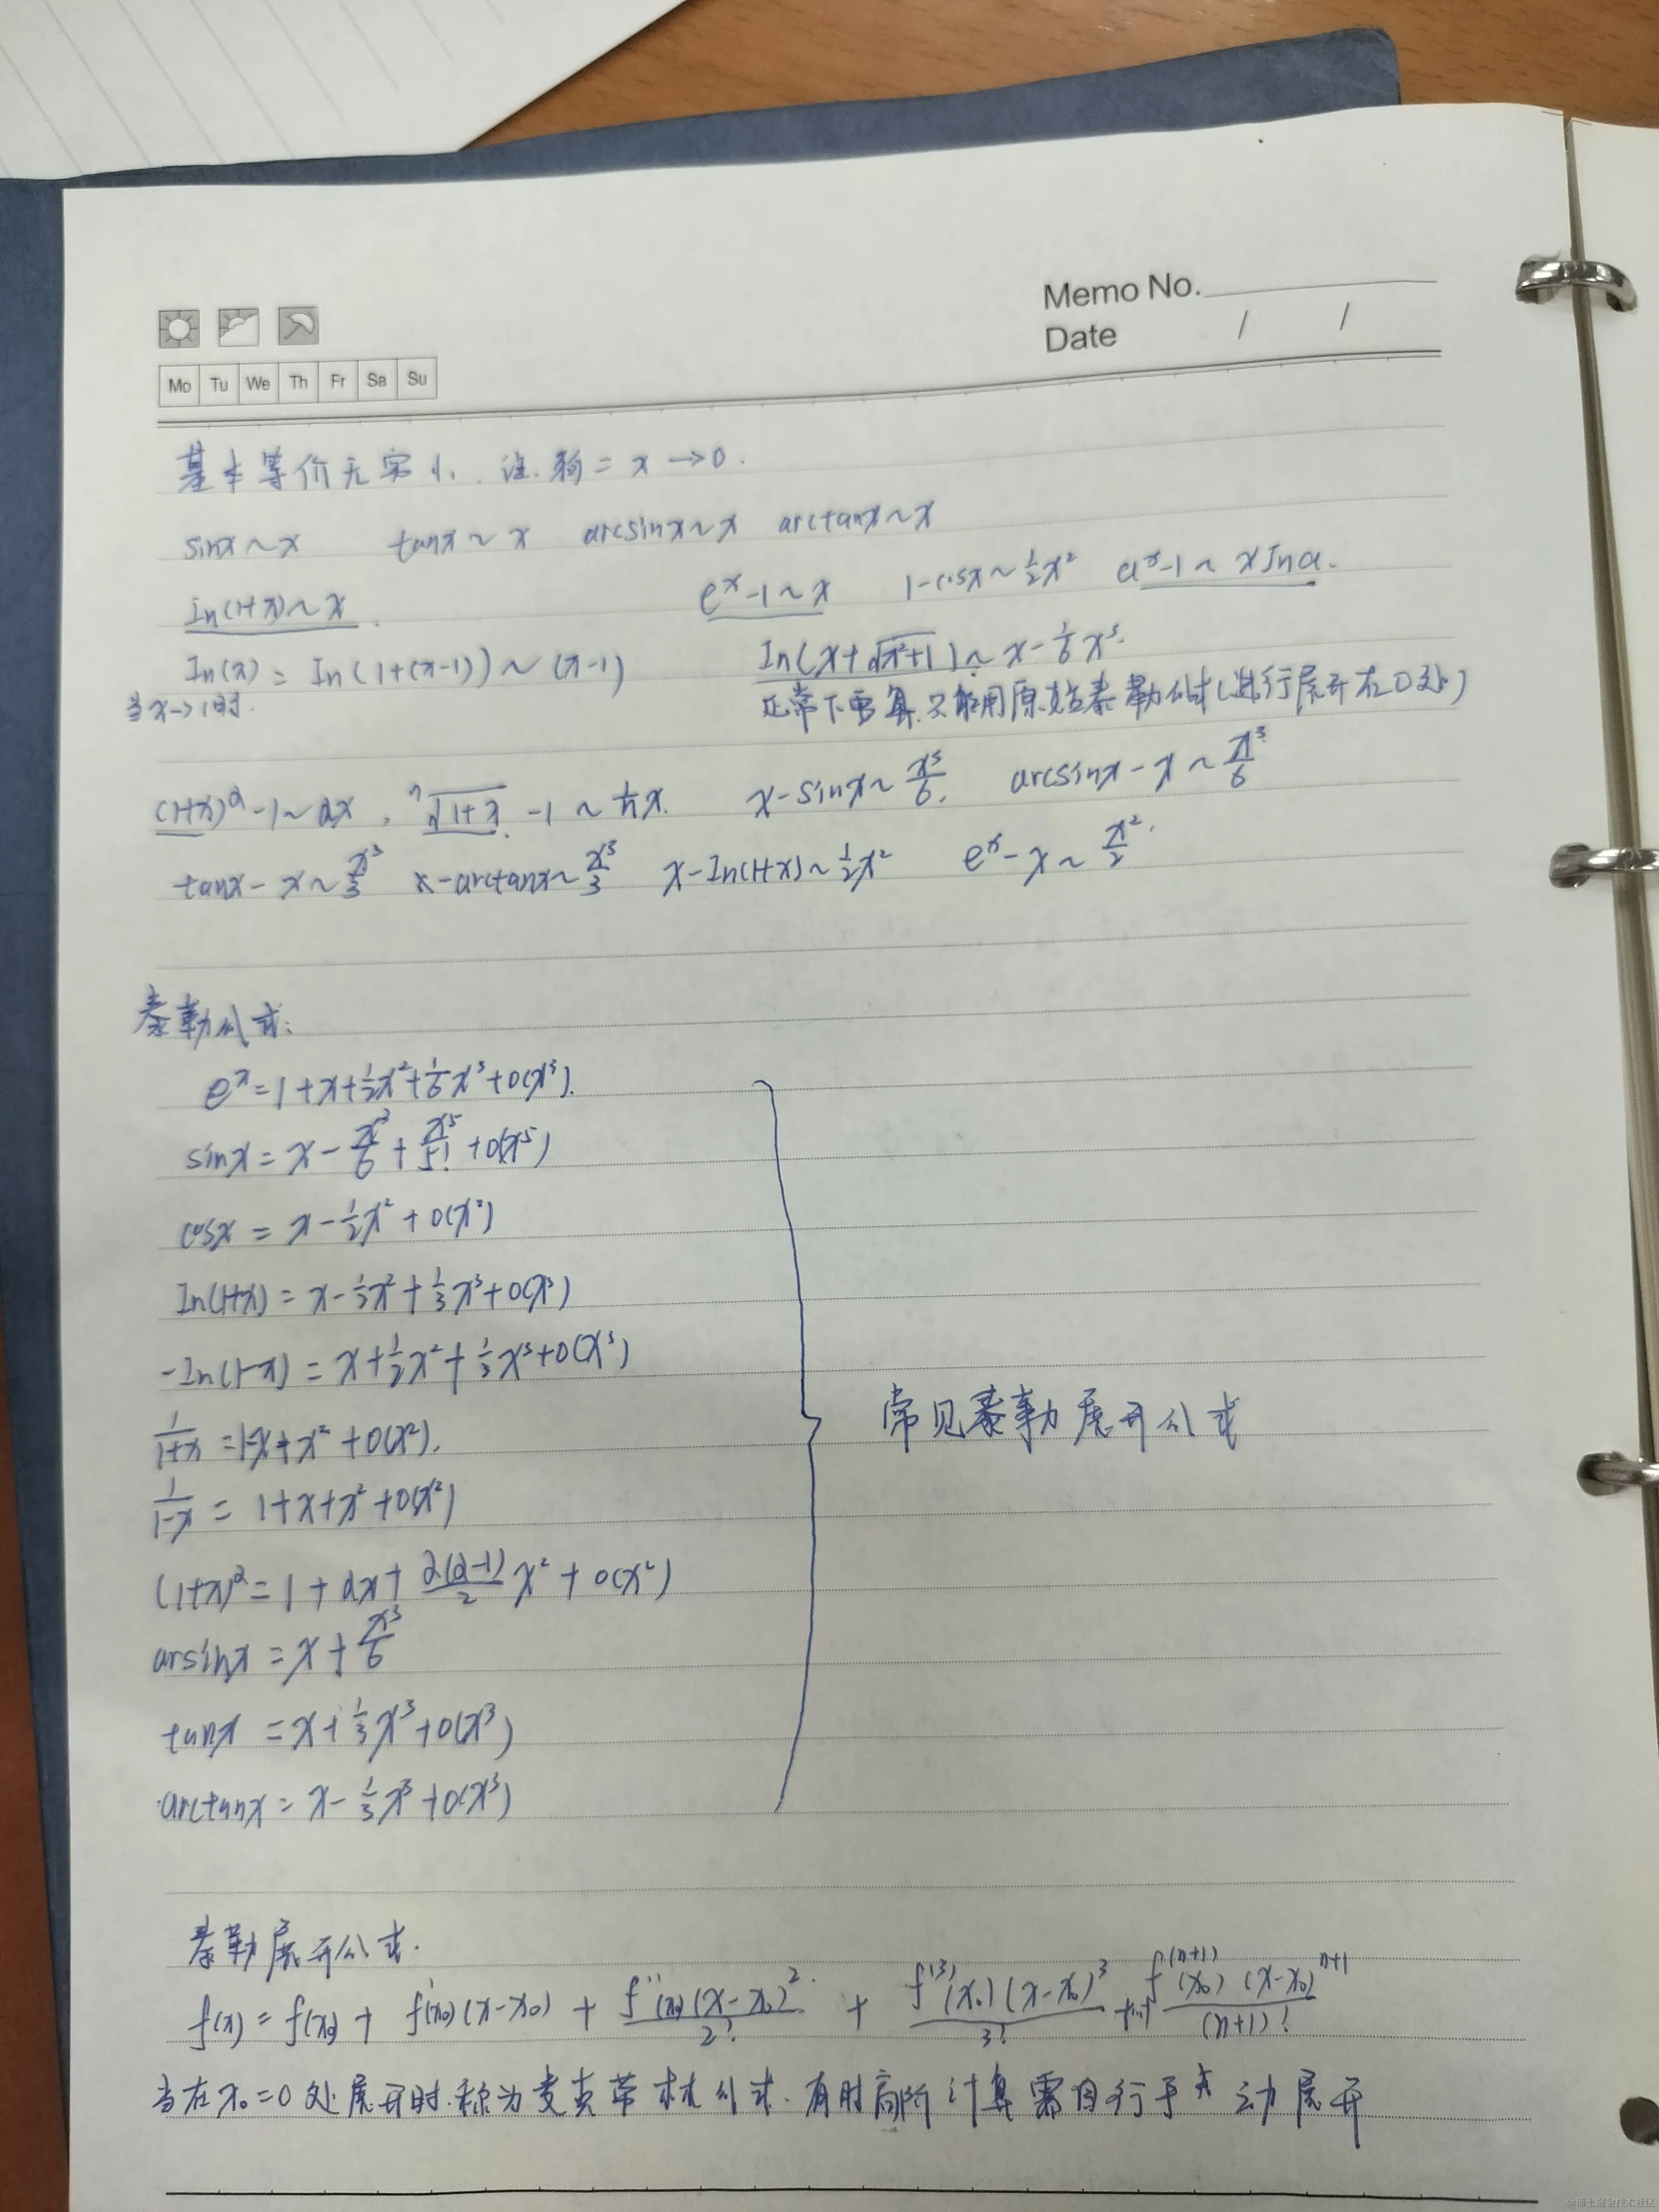 Memo No.
Date / /
Mo Tu We Th Fr Sa Su
基本等价无穷小. 注. 狗 = x → 0.
sinx ~ x tanx ~ x arcsinx ~ x arctanx ~ x
In(1+x) ~ x. e^x - 1 ~ x 1 - cosx ~ 1/2 x² a^x - 1 ~ x Ina.
In(x) = In(1+(x-1)) ~ (x-1) In(x+√(x²+1)) ~ x - 1/6 x³.
当x→1时. 正常下要算. 只能用原始泰勒公式(进行展开在0处)
(1+x)^α - 1 ~ αx, ⁿ√(1+x) - 1 ~ 1/n x. x - sinx ~ x³/6. arcsinx - x ~ x³/6
tanx - x ~ x³/3 x - arctanx ~ x³/3 x - In(1+x) ~ 1/2 x² e^x - x ~ x²/2.
泰勒公式:
e^x = 1 + x + 1/2 x² + 1/6 x³ + o(x³).
sinx = x - x³/6 + x⁵/5! + o(x⁵)
cosx = x - 1/2 x² + o(x²)
In(1+x) = x - 1/2 x² + 1/3 x³ + o(x³)
-In(1-x) = x + 1/2 x² + 1/3 x³ + o(x³)
1/(1+x) = 1-x+x² + o(x²).
常见泰勒展开公式
1/(1-x) = 1+x+x²+o(x²)
(1+x)^α = 1 + αx + α(α-1)/2 x² + o(x²)
arsinx = x + x³/6
tanx = x + 1/3 x³ + o(x³)
arctanx = x - 1/3 x³ + o(x³)
泰勒展开公式.
f(x) = f(x₀) + f'(x₀)(x-x₀) + f''(x₀)(x-x₀)²/2! + f^(3)(x₀)(x-x₀)³/3! + f^(n+1)(x₀)(x-x₀)^(n+1)/(n+1)!
当在x₀=0处展开时. 称为麦克劳林公式. 有时高阶计算需自行手动展开
@稀土掘金技术社区